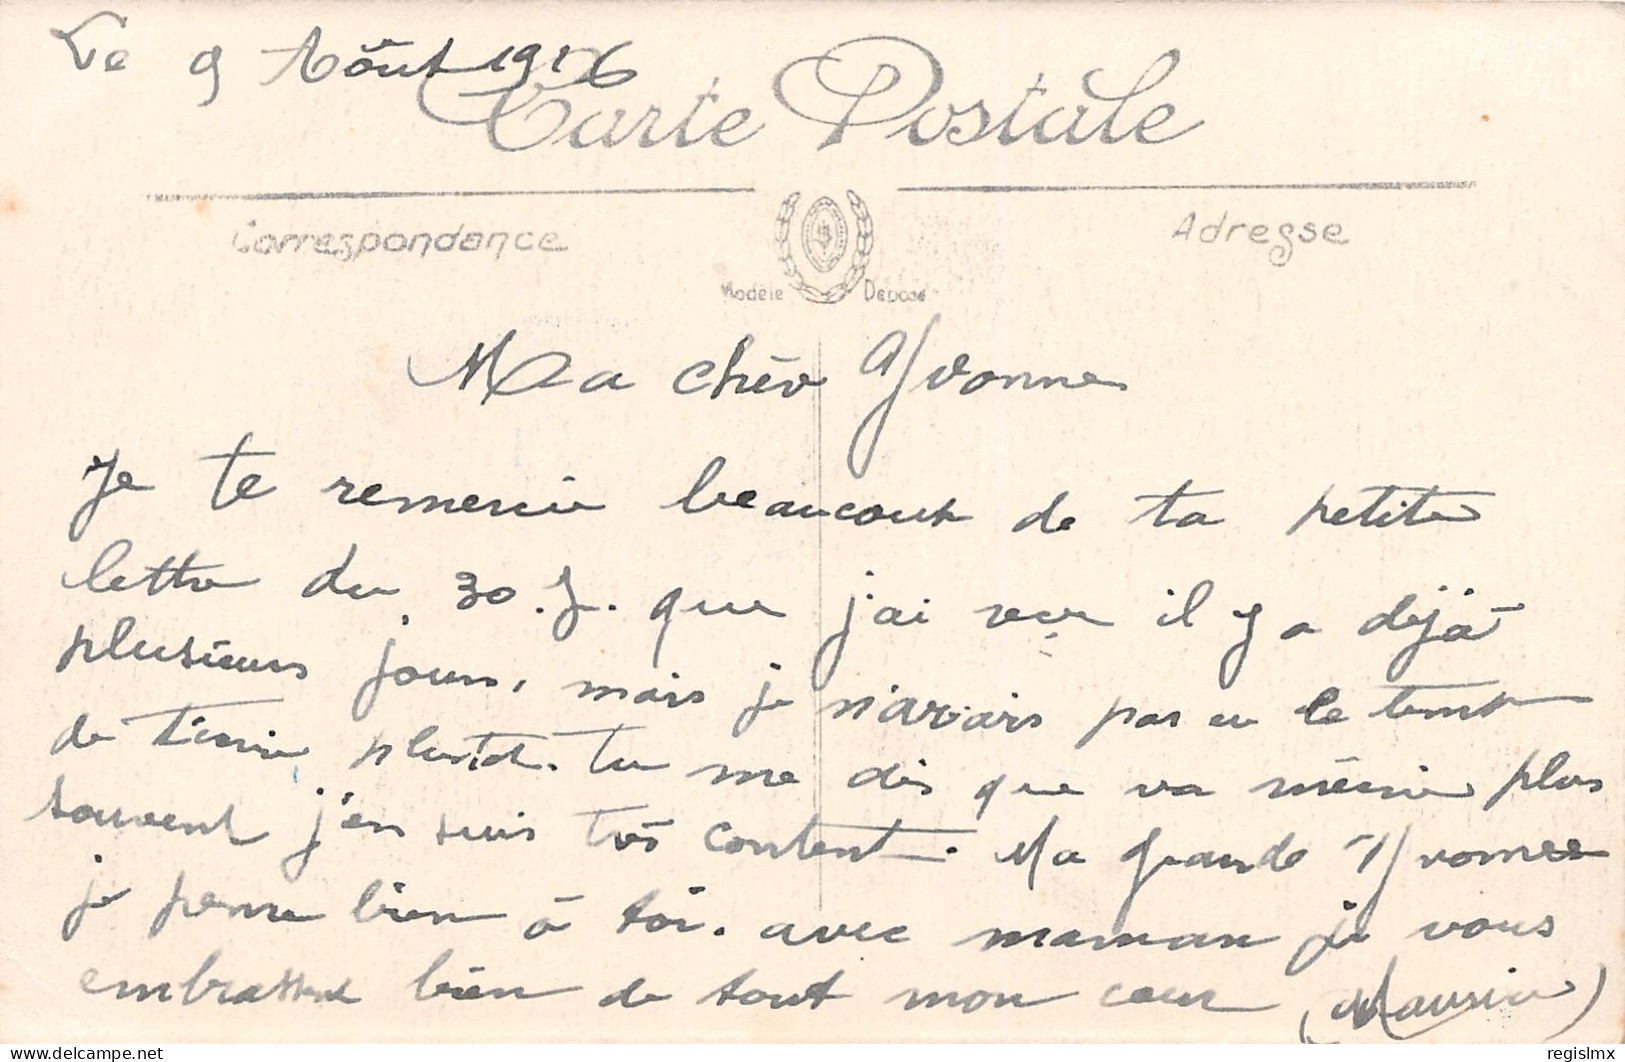 Le 9 Aôut 1916
Carte Postale
Correspondance
Adresse
Modèle Déposé
Ma chère Yvonne
Je te remercie beaucoup de ta petite
lettre du 30.J. que j'ai reçu il y a déjà
plusieurs jours, mais je n'avais pas eu le temps
de t'écrire plutôt. tu me dis que va m'écrire plus
souvent j'en suis très content. Ma grande Yvonne
je pense bien à toi. avec maman je vous
embrasse bien de tout mon cœur (Maurice)
regislmx